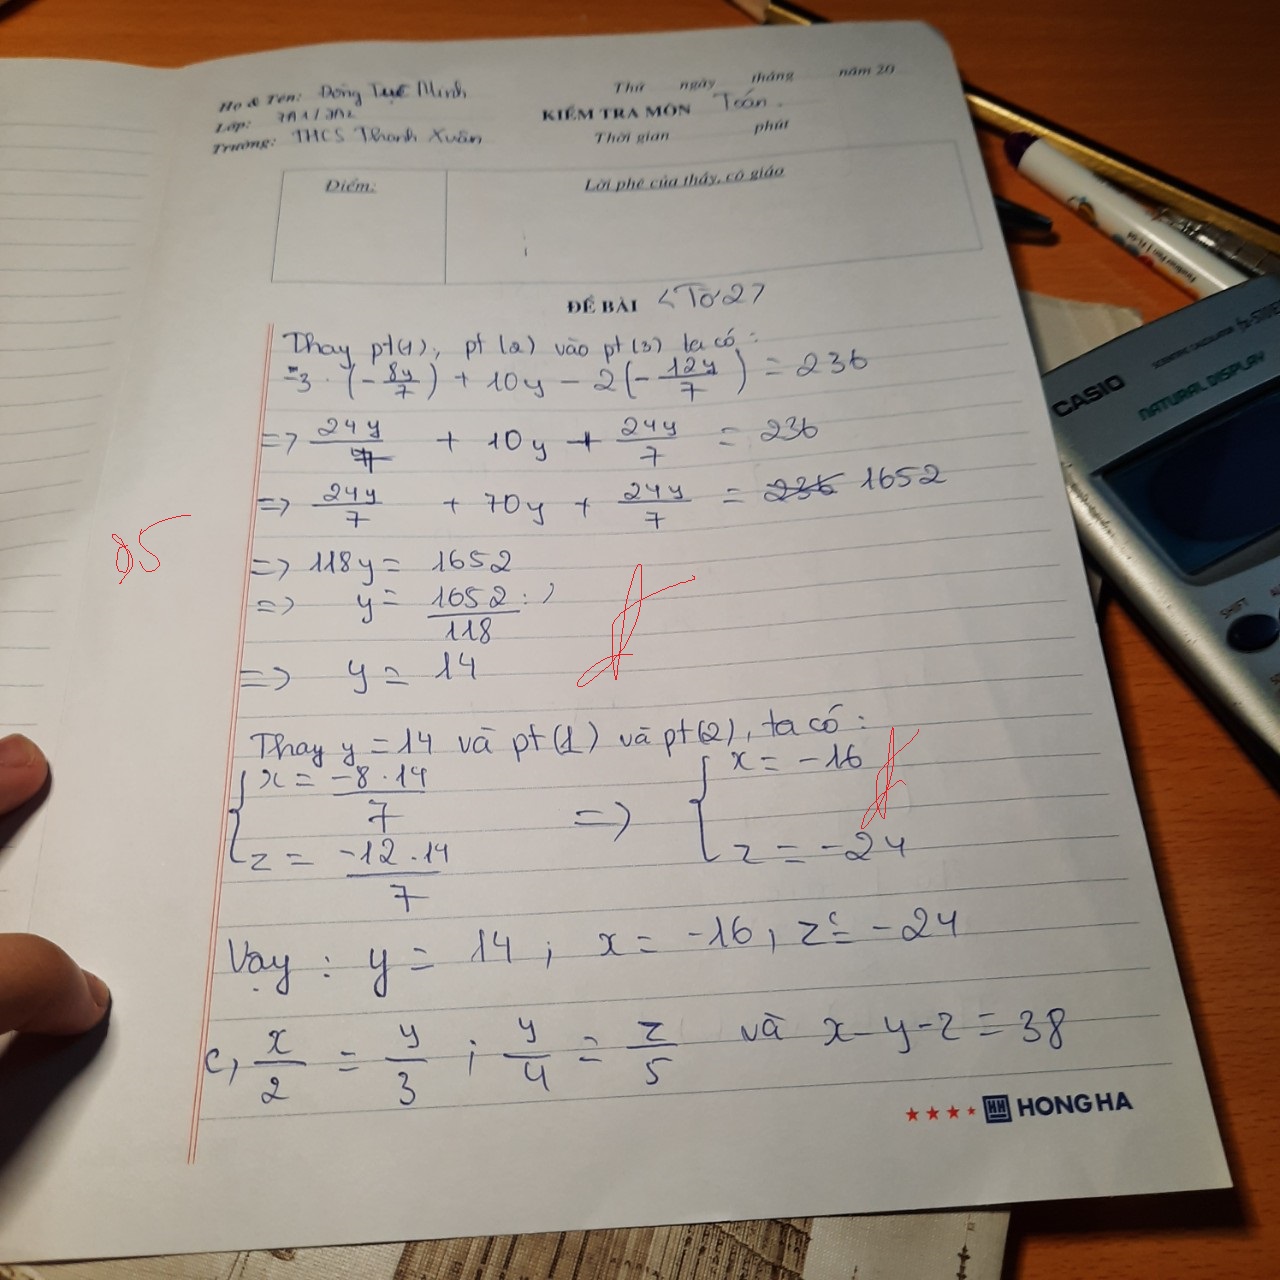 Họ & Tên: Đồng Tục Minh
Lớp: 7A1/7A2
Trường: THCS Thanh Xuân
Thứ ngày tháng năm 20
KIỂM TRA MÔN Toán.
Thời gian phút
Điểm:
Lời phê của thầy, cô giáo
ĐỀ BÀI <Tờ 2>
Thay pt(1), pt(2) vào pt(3) ta có:
-3 · (-8y/7) + 10y - 2(-12y/7) = 236
=> 24y/7 + 10y + 24y/7 = 236
=> 24y/7 + 70y + 24y/7 = 236 1652
=> 118y = 1652
=> y = 1652/118
=> y = 14
Thay y = 14 và pt(1) và pt(2), ta có:
{ x = -8.14/7
z = -12.14/7
=> { x = -16
z = -24
Vạy: y = 14; x = -16, z = -24
c, x/2 = y/3 ; y/4 = z/5 và x - y - z = 38
HONG HA
CASIO
NATURAL DISPLAY
SHIFT